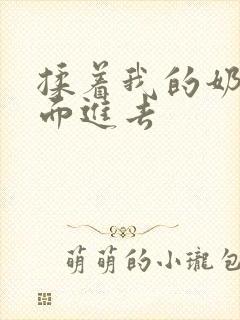 揉着我的奶
而进去
萌萌的小瓏包